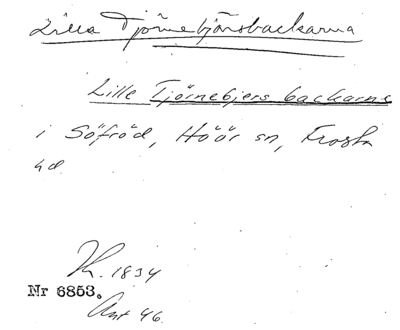 Lilla Tjörnebjärsbackarna
Lille Tjörnebjers backarne
i Söfröd, Höör sn, Frosta
hd.
Kr. 1834
Nr 6853.
Ant 46.